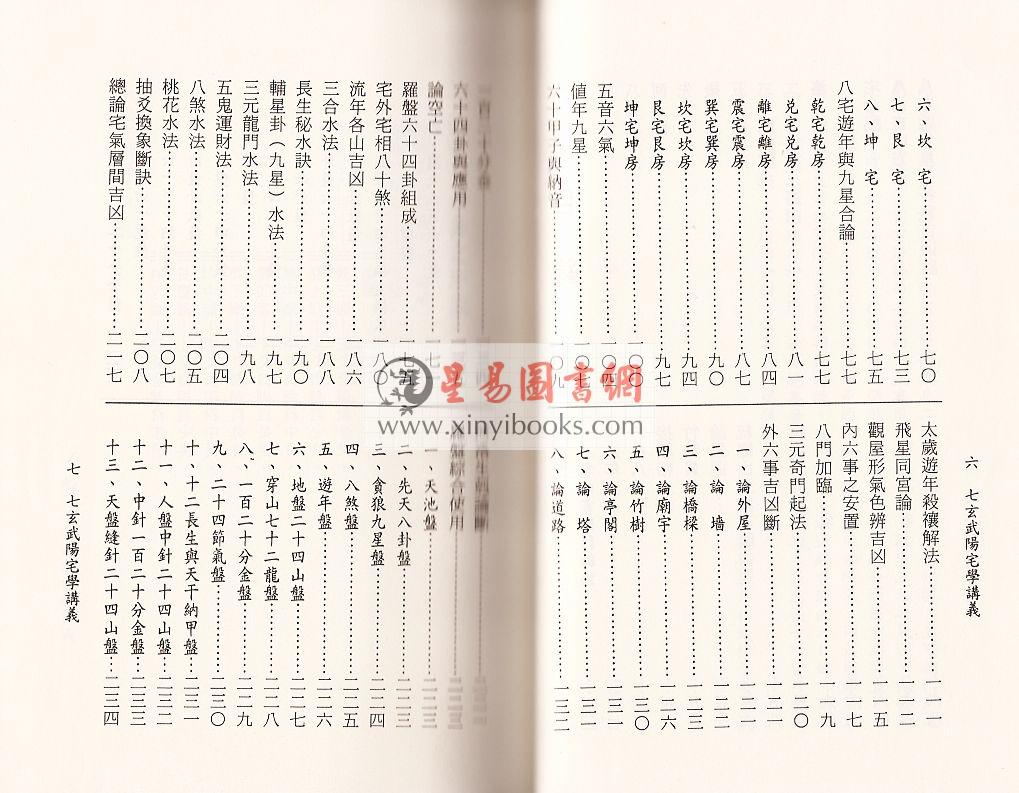 六、坎　宅……七〇
七、艮　宅……七三
八、坤　宅……七五
八宅遊年與九星合論……七七
乾宅乾房……七七
兌宅兌房……八一
離宅離房……八四
震宅震房……八七
巽宅巽房……九〇
坎宅坎房……九四
艮宅艮房……九七
坤宅坤房……一〇〇
五音六氣……一〇四
値年九星……一〇七
六十甲子與納音……一〇九
太歲遊年殺禳解法……一一一
飛星同宮論……一一二
觀屋形氣色辨吉凶……一一五
內六事之安置……一一七
八門加臨……一一九
三元奇門起法……一二〇
外六事吉凶斷……一二一
一、論外屋……一二一
二、論　墻……一二二
三、論橋樑……一二三
四、論廟宇……一二六
五、論竹樹……一三〇
六、論亭閣……一三一
七、論　塔……一三一
八、論道路……一三二
六　七玄武陽宅學講義
一百二十分金
六十四卦與應用
論空亡
羅盤六十四卦組成……一七五
宅外宅相八十煞……一八〇
流年各山吉凶……一八六
三合水法……一八八
長生秘水訣……一九〇
輔星卦（九星）水法……一九七
三元龍門水法……一九八
五鬼運財法……二〇四
八煞水法……二〇五
桃花水法……二〇七
抽爻換象斷訣……二〇八
總論宅氣層間吉凶……二一七
羅盤綜合使用
一、天池盤
二、先天八卦盤……二二三
三、貪狼九星盤……二二四
四、八煞盤……二二五
五、遊年盤……二二六
六、地盤二十四山盤……二二七
七、穿山七十二龍盤……二二八
八、一百二十分金盤……二二九
九、二十四節氣盤……二三〇
十、十二長生與天干納甲盤……二三一
十一、人盤中針二十四山盤……二三二
十二、中針一百二十分金盤……二三三
十三、天盤縫針二十四山盤……二三四
七　七玄武陽宅學講義
星易圖書網
www.xinyibooks.com